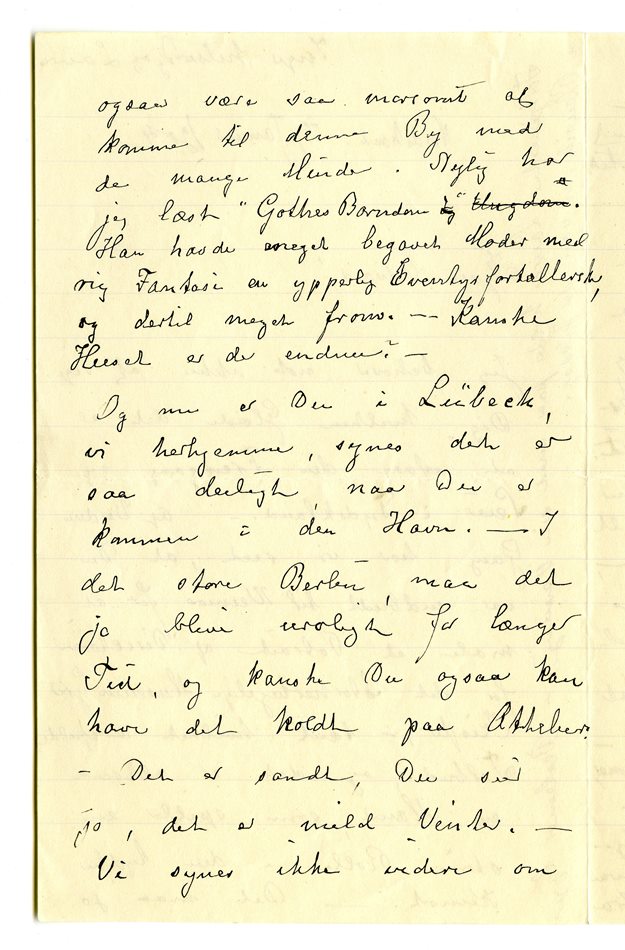 ogsaa være saa morsomt at
komme til denne By med
de mange Minder. Nylig har
jeg læst "Gothes Barndom og" Ungdom".
Han havde meget begavet Moder med
rig Fantasi en ypperlig Eventyrfortællersk,
og dertil meget from. — Kanske
Huset er de endnu? —
Og nu er Du i Lübeck,
vi herhjemme, synes det er
saa deiligt naar Du er
kommen i den Havn. — I
det store Berlin, maa det
jo blive uroligt for længer
Tid, og kanske Du ogsaa kan
have det koldt paa
- Det er sandt, Du sier
jo, det er mild Vinter. —
Vi synes ikke videre om